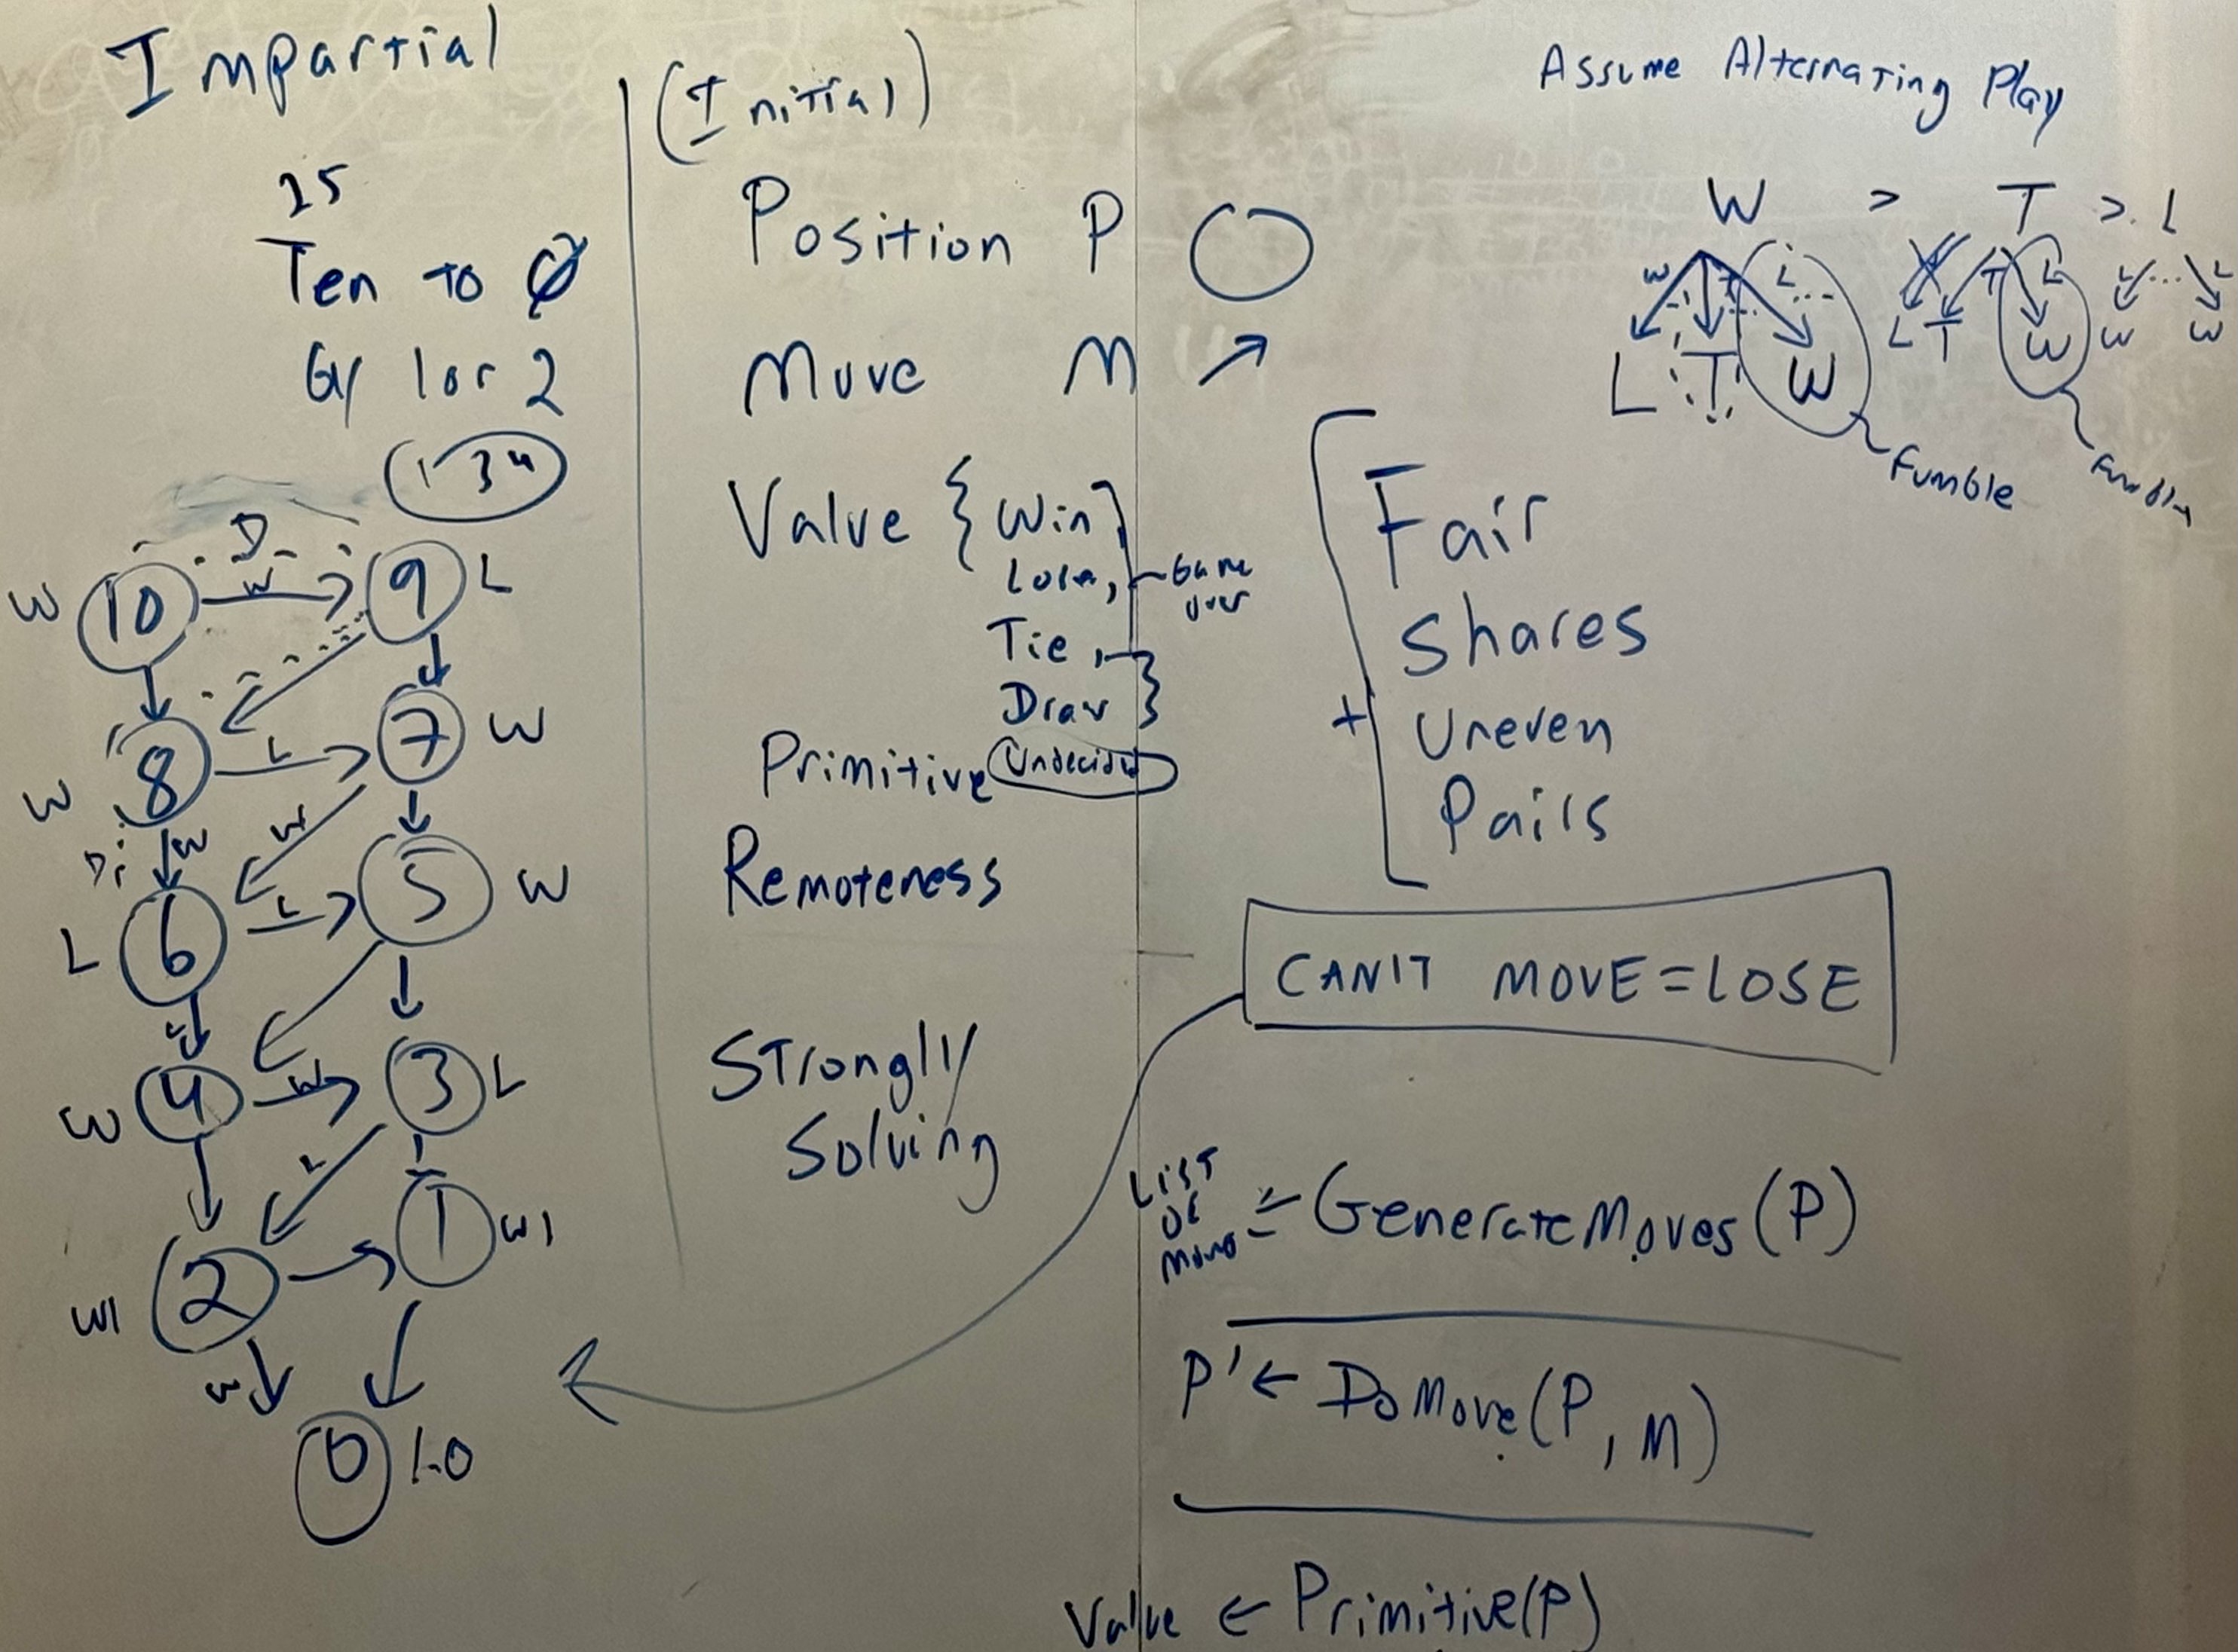 Impartial
25
Ten to 0
By 1 or 2
1 3 4
D
W 10 W 9 L
W 8 L 7 W
W
W
L 6 L 5 W
W 4 W 3 L
L
W1 2 1 W1
W
0 L0
(Initial)
Position P
Move M
Value { Win
Lose,
Tie,
Draw
Game
over
Primitive Undecided
Remoteness
Strongly
Solving
Assume Alternating Play
W > T > L
W T L T L L ... L
L T W L T W W W
Fumble
Fair
Shares
+ Uneven
Pairs
CAN'T MOVE = LOSE
LIST
OF
MOVES = GenerateMoves(P)
P' ← DoMove(P, M)
Value ← Primitive(P)